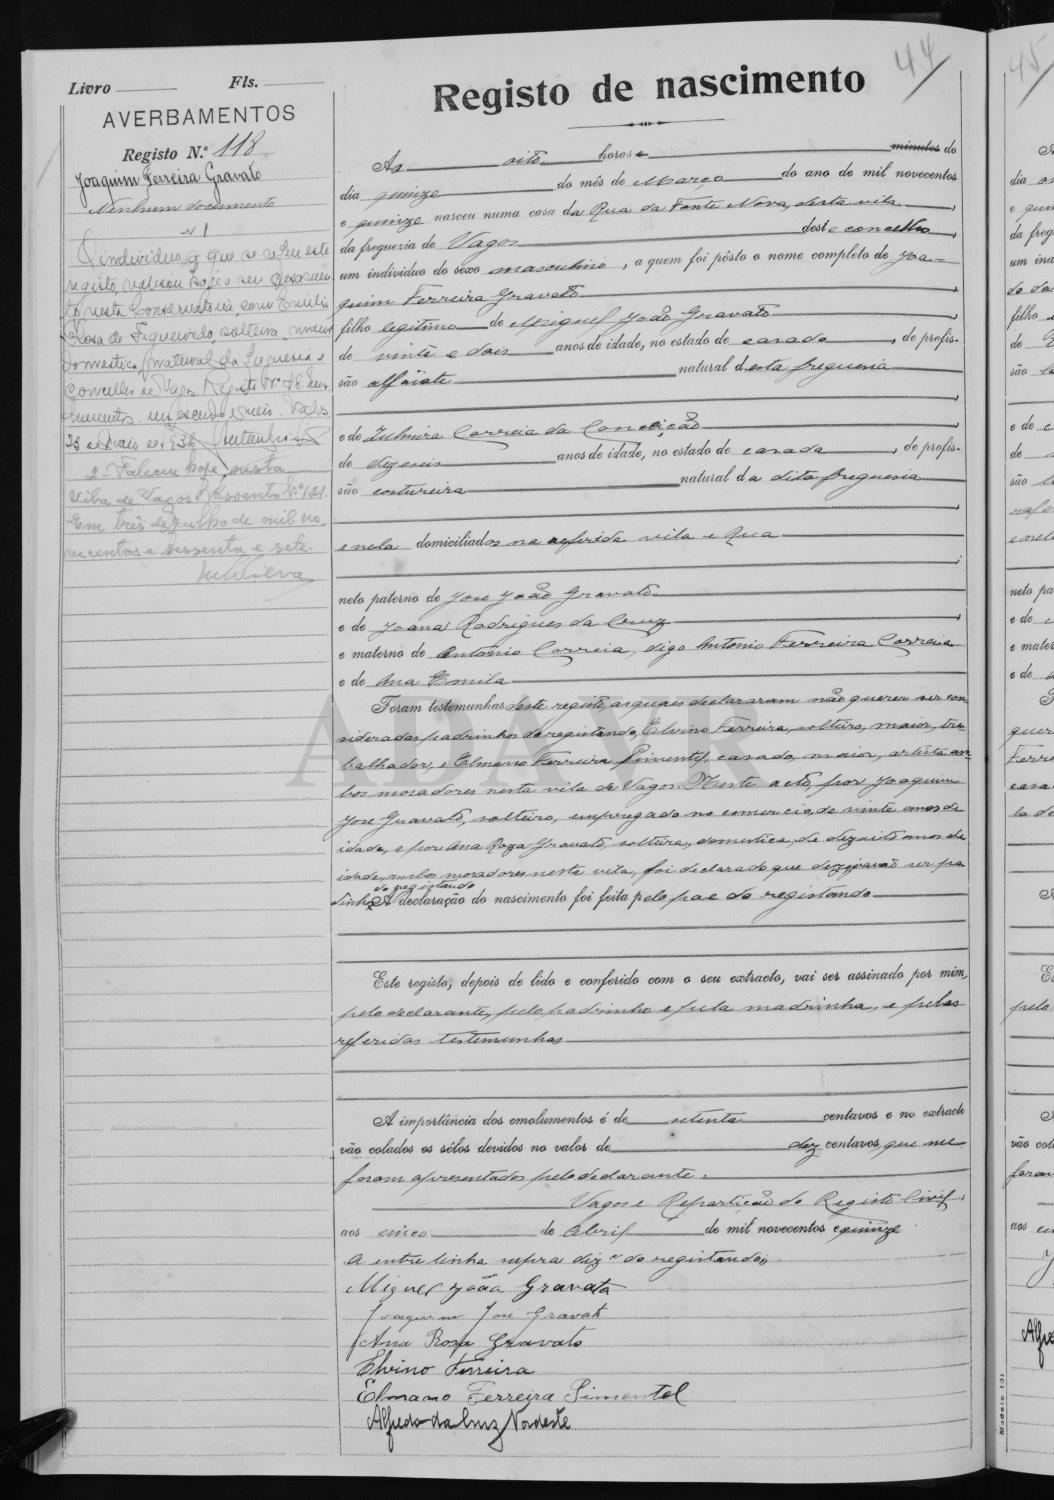 44
Livro Fls.
AVERBAMENTOS
Registo N.º 118
Joaquim Ferreira Gravato
Nenhum documento
Nº 1
O individuo a que se refere este
registo, realisou hoje o seu casamen
to nesta Conservatoria com Emilia
Rosa de Figueiredo, solteira, maior
domestica, natural da freguesia e
concelho de Vagos. Registo Nº 48
um escudo e seis. Vagos
23 de Maio de 1936
2. Faleceu hoje, nesta
vila de Vagos. Assento Nº 121.
Em três de Julho de mil no
vecentos e sessenta e sete.
Registo de nascimento
Ás oito horas e minutos do
dia quinze do mês de Março do ano de mil novecentos
e quinze nasceu numa casa da Rua da Fonte Nova, desta vila
da freguezia de Vagos deste concelho,
um individuo do sexo masculino, a quem foi pôsto o nome completo de Joa-
quim Ferreira Gravato
filho legitimo de Miguel João Gravato
de vinte e dois anos de idade, no estado de casado, de profis-
são alfaiate natural desta freguesia
e de Zulmira Correia da Conceição
de dezeseis anos de idade, no estado de casada, de profis-
são costureira natural da dita freguesia
e nela domiciliados na referida vila e Rua
neto paterno de José João Gravato
e de Joana Rodrigues da Cruz
e materno de Antonio Correia, digo Antonio Ferreira Correia
e de Ana Emila
Foram testemunhas deste registo, as quais declararam não querer ser con
sideradas padrinhos do registando, Elvino Ferreira, solteiro, maior, tra-
balhador, e Elmano Ferreira Pimentel, casado, maior, artista am-
bos moradores nesta vila de Vagos. Neste acto, por Joaquim
José Gravato, solteiro, empregado no comercio, de vinte anos de
idade, e por Ana Roza Gravato, solteira, domestica, de dezoito anos de
idade, ambos moradores nesta vila, foi declarado que desejavam ser pa
do registando
drinhos A declaração do nascimento foi feita pelo pae do registando
Este registo, depois de lido e conferido com o seu extracto, vai ser assinado por mim,
pelo declarante, pelo padrinho e pela madrinha, e pelas
referidas testemunhas
A importância dos emolumentos é de setenta centavos e no extracto
vão colados os sêlos devidos no valor de dez centavos, que me
foram apresentados pelo declarante.
Vagos e Repartição do Registo Civil,
aos cinco de Abril de mil novecentos e quinze
A entrelinha supra diz "do registando"
Miguel João Gravato
Joaquim José Gravato
Ana Rosa Gravato
Elvino Ferreira
Elmano Ferreira Pimentel
Alfredo da Cruz Nordeste
ADAVR
45
Modelo 101